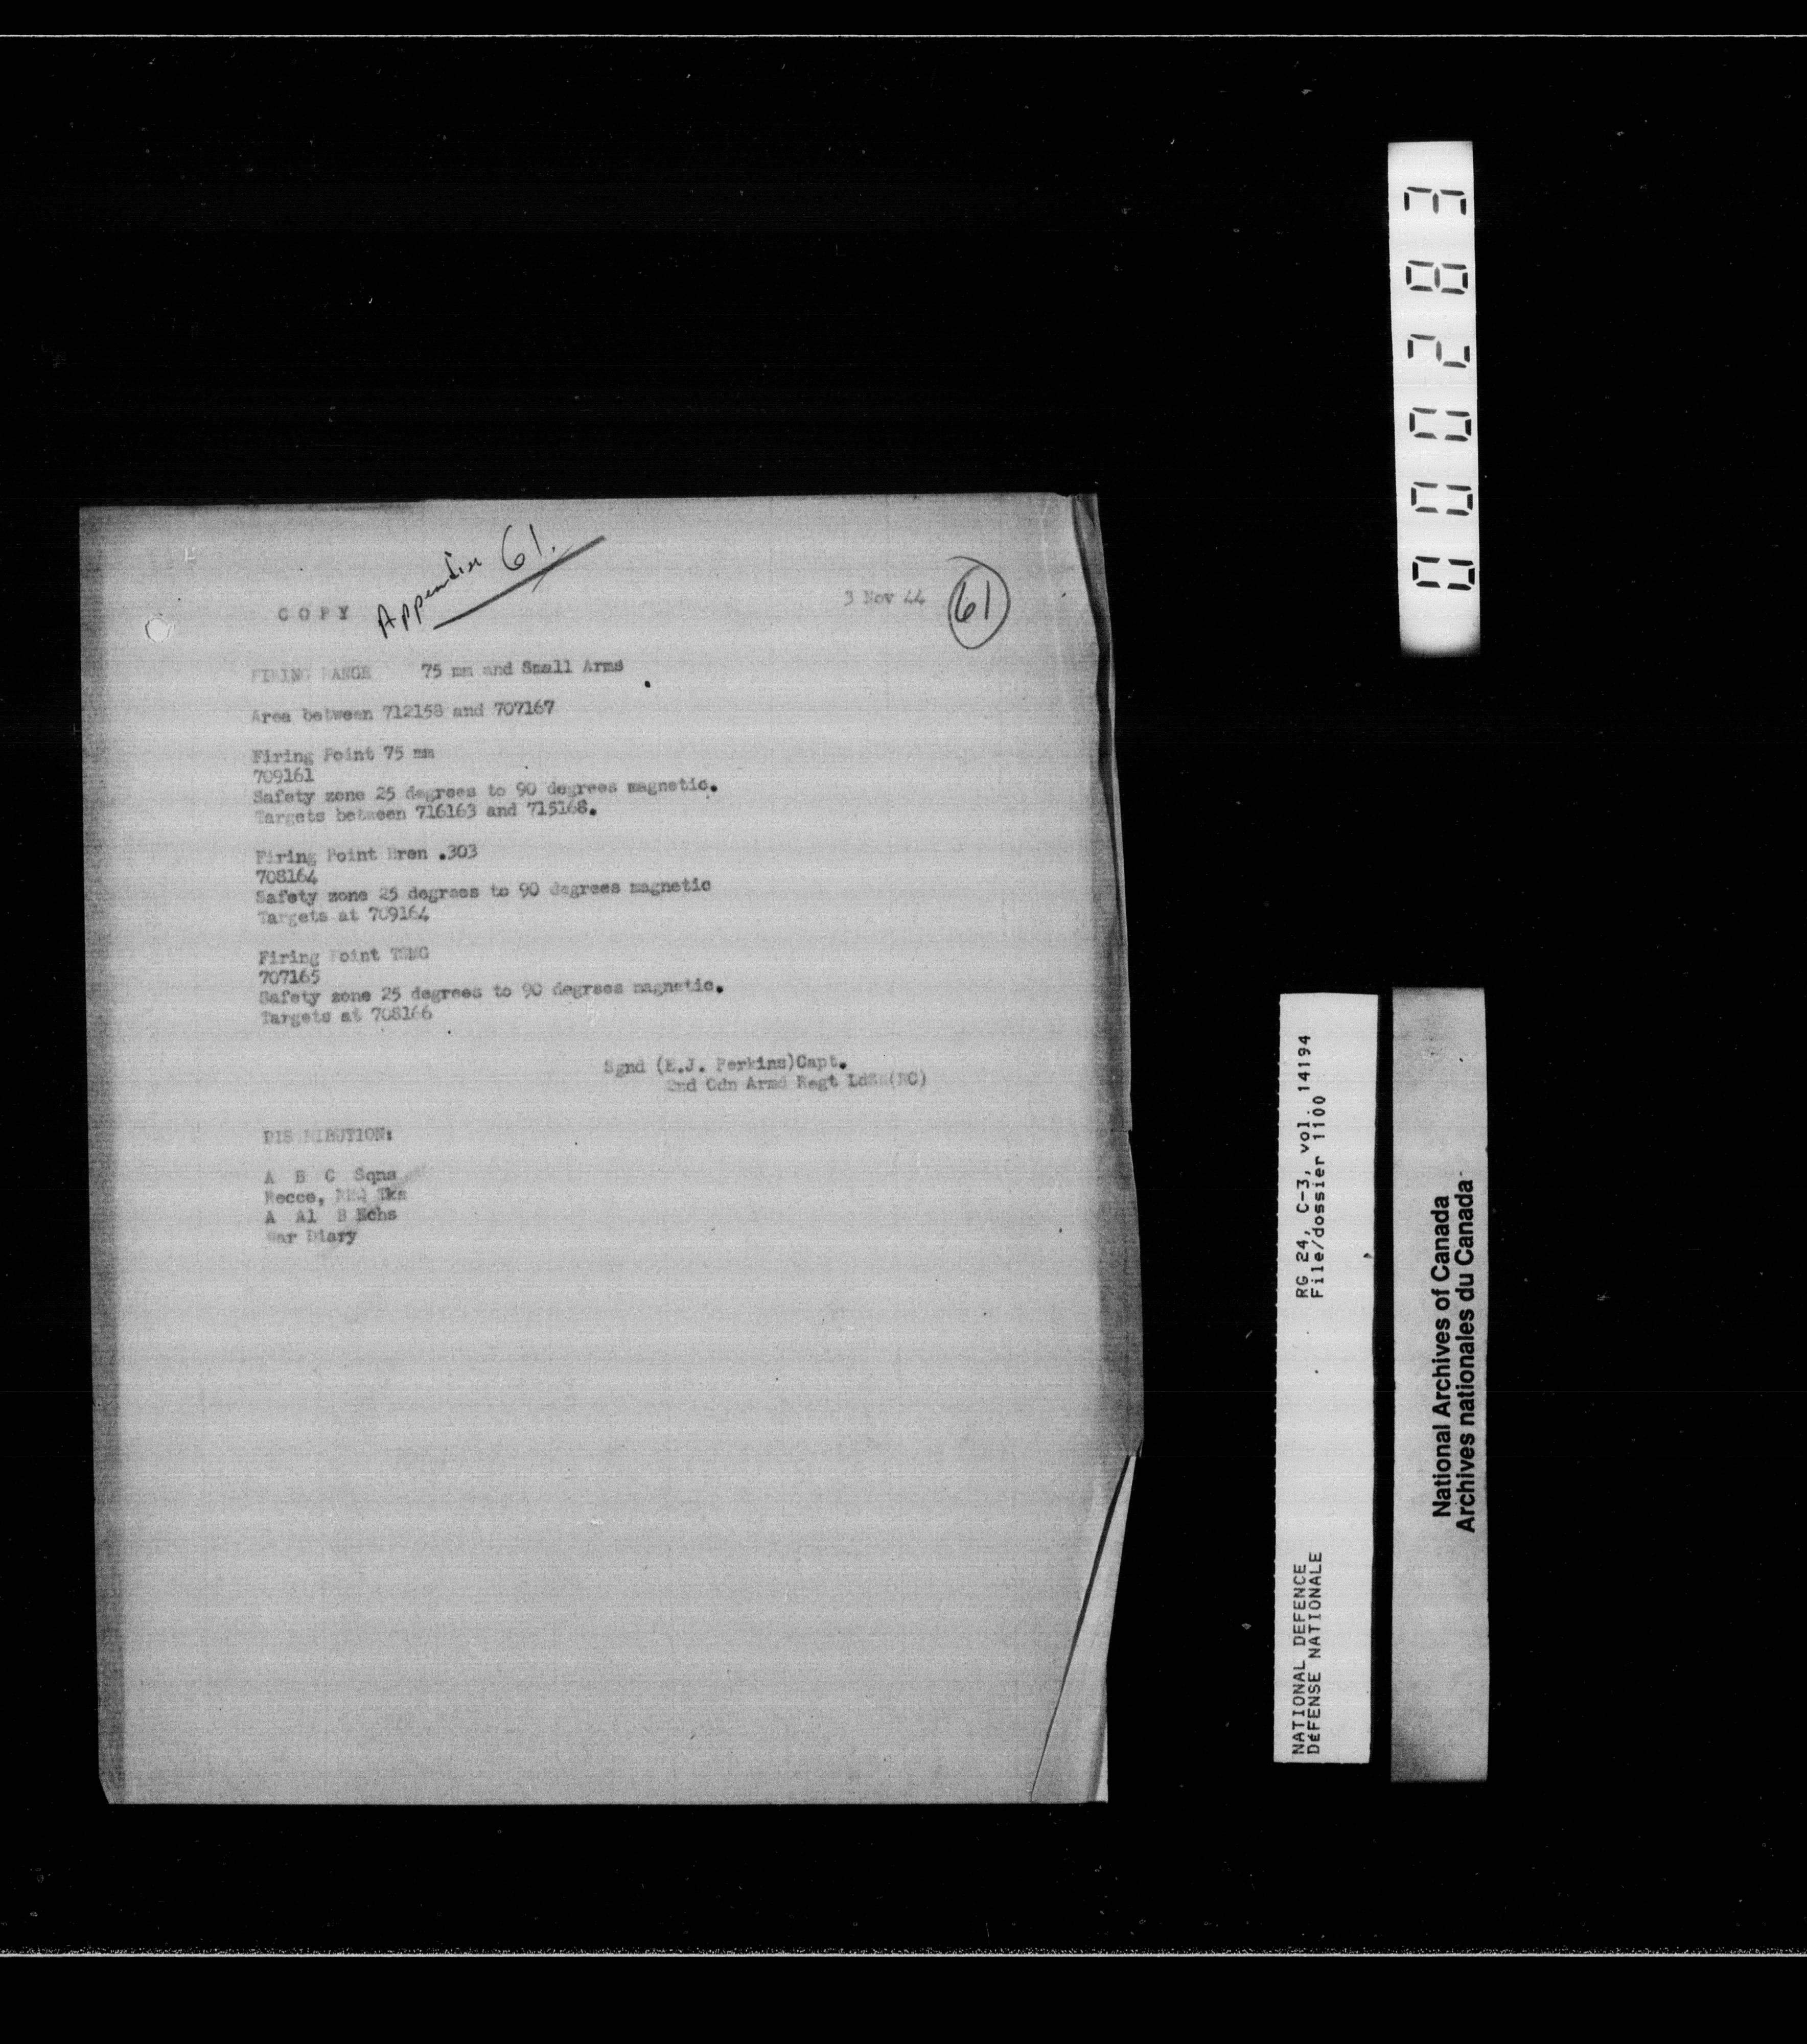 Appendix 61.
COPY
3 Nov 44
61
FIRING RANGE 75 mm and Small Arms
Area between 712158 and 707167
Firing Point 75 mm
709161
Safety zone 25 degrees to 90 degrees magnetic.
Targets between 716163 and 715168.
Firing Point Bren .303
708164
Safety zone 25 degrees to 90 degrees magnetic
Targets at 709164
Firing Point TSMG
707165
Safety zone 25 degrees to 90 degrees magnetic.
Targets at 708166
Sgnd (E.J. Perkins)Capt.
2nd Cdn Armd Regt LdSH(RC)
DISTRIBUTION:
A B C Sqns
Recce, RHQ Tks
A A1 B Echs
War Diary
000283
RG 24, C-3, vol. 14194
File/dossier 1100
NATIONAL DEFENCE
DéFENSE NATIONALE
National Archives of Canada
Archives nationales du Canada